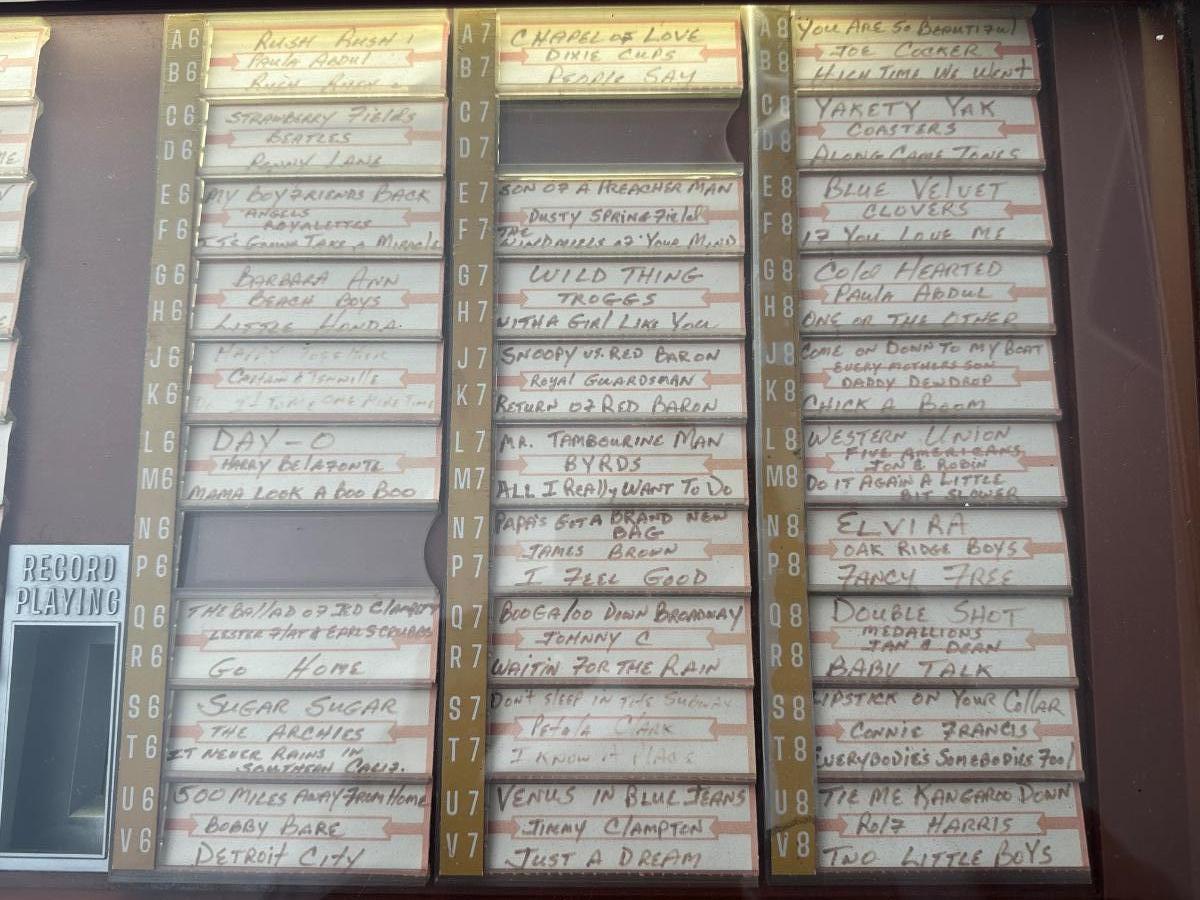 ME
V
E
RECORD
PLAYING
A6
B6
RUSH RUSH!
PAULA ABDUL
RUSH RUSH
C6
D6
STRAWBERRY FIELDS
BEATLES
PENNY LANE
E6
F6
MY BOYFRIENDS BACK
ANGELS
ROYALETTES
IT'S GONNA TAKE A MIRACLE
G6
H6
BARBARA ANN
BEACH BOYS
LITTLE HONDA
J6
K6
HAPPY TOGETHER
CAPTAIN & TENNILLE
IT TO ME ONE MORE TIME
L6
M6
DAY-O
HARRY BELAFONTE
MAMA LOOK A BOO BOO
N6
P6
Q6
R6
THE BALLAD OF JED CLAMPETT
LESTER FLAT & EARL SCRUGGS
GO HOME
S6
T6
SUGAR SUGAR
THE ARCHIES
IT NEVER RAINS IN
SOUTHERN CALIF.
U6
V6
500 MILES AWAY FROM HOME
BOBBY BARE
DETROIT CITY
A7
B7
CHAPEL OF LOVE
DIXIE CUPS
PEOPLE SAY
C7
D7
E7
F7
SON OF A PREACHER MAN
DUSTY SPRINGFIELD
THE
WINDMILLS OF YOUR MIND
G7
H7
WILD THING
TROGGS
WITH A GIRL LIKE YOU
J7
K7
SNOOPY VS. RED BARON
ROYAL GUARDSMAN
RETURN OF RED BARON
L7
M7
MR. TAMBOURINE MAN
BYRDS
ALL I REALLY WANT TO DO
N7
P7
PAPA'S GOT A BRAND NEW
BAG
JAMES BROWN
I FEEL GOOD
Q7
R7
BOOGALOO DOWN BROADWAY
JOHNNY C
WAITIN FOR THE RAIN
S7
T7
DON'T SLEEP IN THE SUBWAY
PETULA CLARK
I KNOW A PLACE
U7
V7
VENUS IN BLUE JEANS
JIMMY CLAMPTON
JUST A DREAM
A8
B8
YOU ARE SO BEAUTIFUL
JOE COCKER
HIGH TIME WE WENT
C8
D8
YAKETY YAK
COASTERS
ALONG CAME JONES
E8
F8
BLUE VELVET
CLOVERS
IF YOU LOVE ME
G8
H8
COLD HEARTED
PAULA ABDUL
ONE OR THE OTHER
J8
K8
COME ON DOWN TO MY BOAT
EVERY MOTHERS SON
DADDY DEWDROP
CHICK A BOOM
L8
M8
WESTERN UNION
FIVE AMERICANS
JON & ROBIN
DO IT AGAIN A LITTLE
BIT SLOWER
N8
P8
ELVIRA
OAK RIDGE BOYS
FANCY FREE
Q8
R8
DOUBLE SHOT
MEDALLIONS
JAN & DEAN
BABY TALK
S8
T8
LIPSTICK ON YOUR COLLAR
CONNIE FRANCIS
EVERYBODIE'S SOMEBODIES FOOL
U8
V8
TIE ME KANGAROO DOWN
ROLF HARRIS
TWO LITTLE BOYS